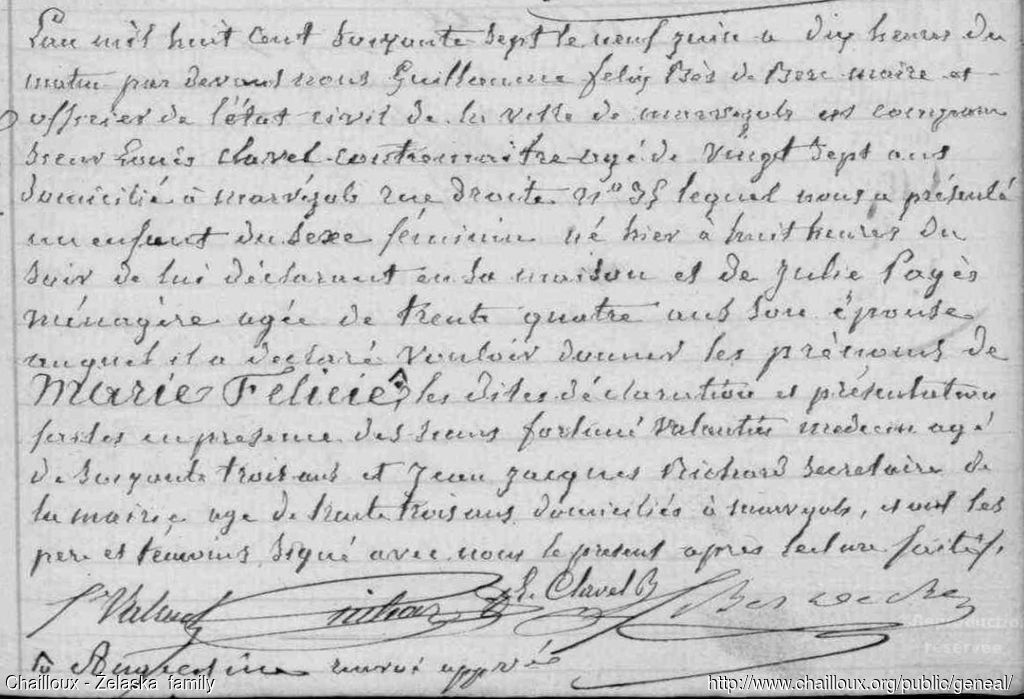 L'an mil huit cent soixante sept le neuf juin a dix heures du
matin par devant nous Guillaume felix Bès de Berc maire et
officier de l'état civil de la ville de marvejols est comparu
sieur Louis Clavel contremaitre agé de vingt sept ans
domicilié à marvéjols rue droite n° 35 lequel nous a présenté
un enfant du sexe féminin né hier à huit heures du
soir de lui déclarant en sa maison et de Julie Pagès
ménagère agée de trente quatre ans son épouse
auquel il a declaré vouloir donner les prénoms de
Marie Félicie les dites déclaration et présentation
faites en presence des sieurs fortuné Valantin medecin agé
de soixante trois ans et Jean Jacques Richard secretaire de
la mairie age de trente trois ans domiciliés à marvejols, et ont les
pere et témoins signé avec nous le present apres lecture faite.
L. Clavel Bès de Berc
renvoi approuvé
Chailloux - Żelaska family
http://www.chailloux.org/public/geneal/
Reproduction
réservée